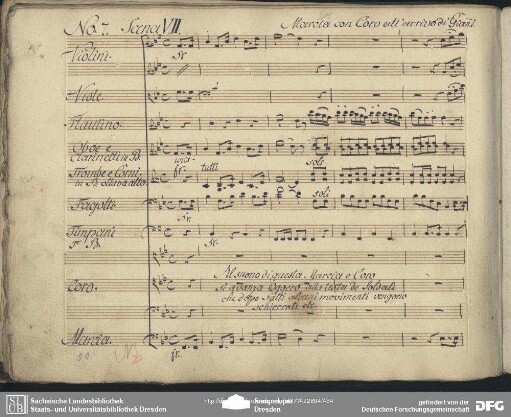 No. 7. Scena VII. Marcia con Coro all'arrivo di
Violini.
Viole.
Flautino.
Oboe e
Clarinetti in B.
unis:
soli
Trombe e Corni
in B.
tutti
Fagotti
soli
Timpani
Coro.
Al suono di questa Marcia e Coro
si avanza alla testa de Soldati
che dopo fatti alcuni movimenti vengono
schierati etc.
Marcia.
Sächsische Landesbibliothek
Staats- und Universitätsbibliothek Dresden
Dresden
gefördert von der
Deutschen Forschungsgemeinschaft
DFG